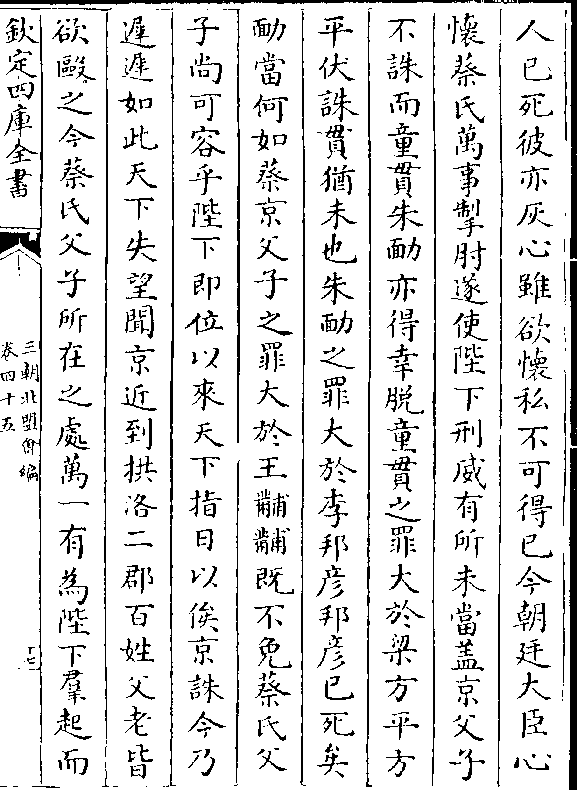 人已死彼亦灰心雖欲懷私不可得已今朝廷大臣心
懷蔡氏萬事掣肘遂使陛下刑威有所未當蓋京父子
不誅而童貫朱勔亦得幸脱童貫之罪大於梁方平方
平伏誅貫猶未也朱勔之罪大於李邦彦邦彦已死矣
勔當何如蔡京父子之罪大於王黼黼既不免蔡氏父
子尚可容乎陛下即位以來天下指日以俟京誅今乃
遲遲如此天下失望聞京近到拱洛二郡百姓父老皆
欲毆之今蔡氏父子所在之處萬一有為陛下羣起而
欽定四庫全書
三朝北盟會編
卷四十五